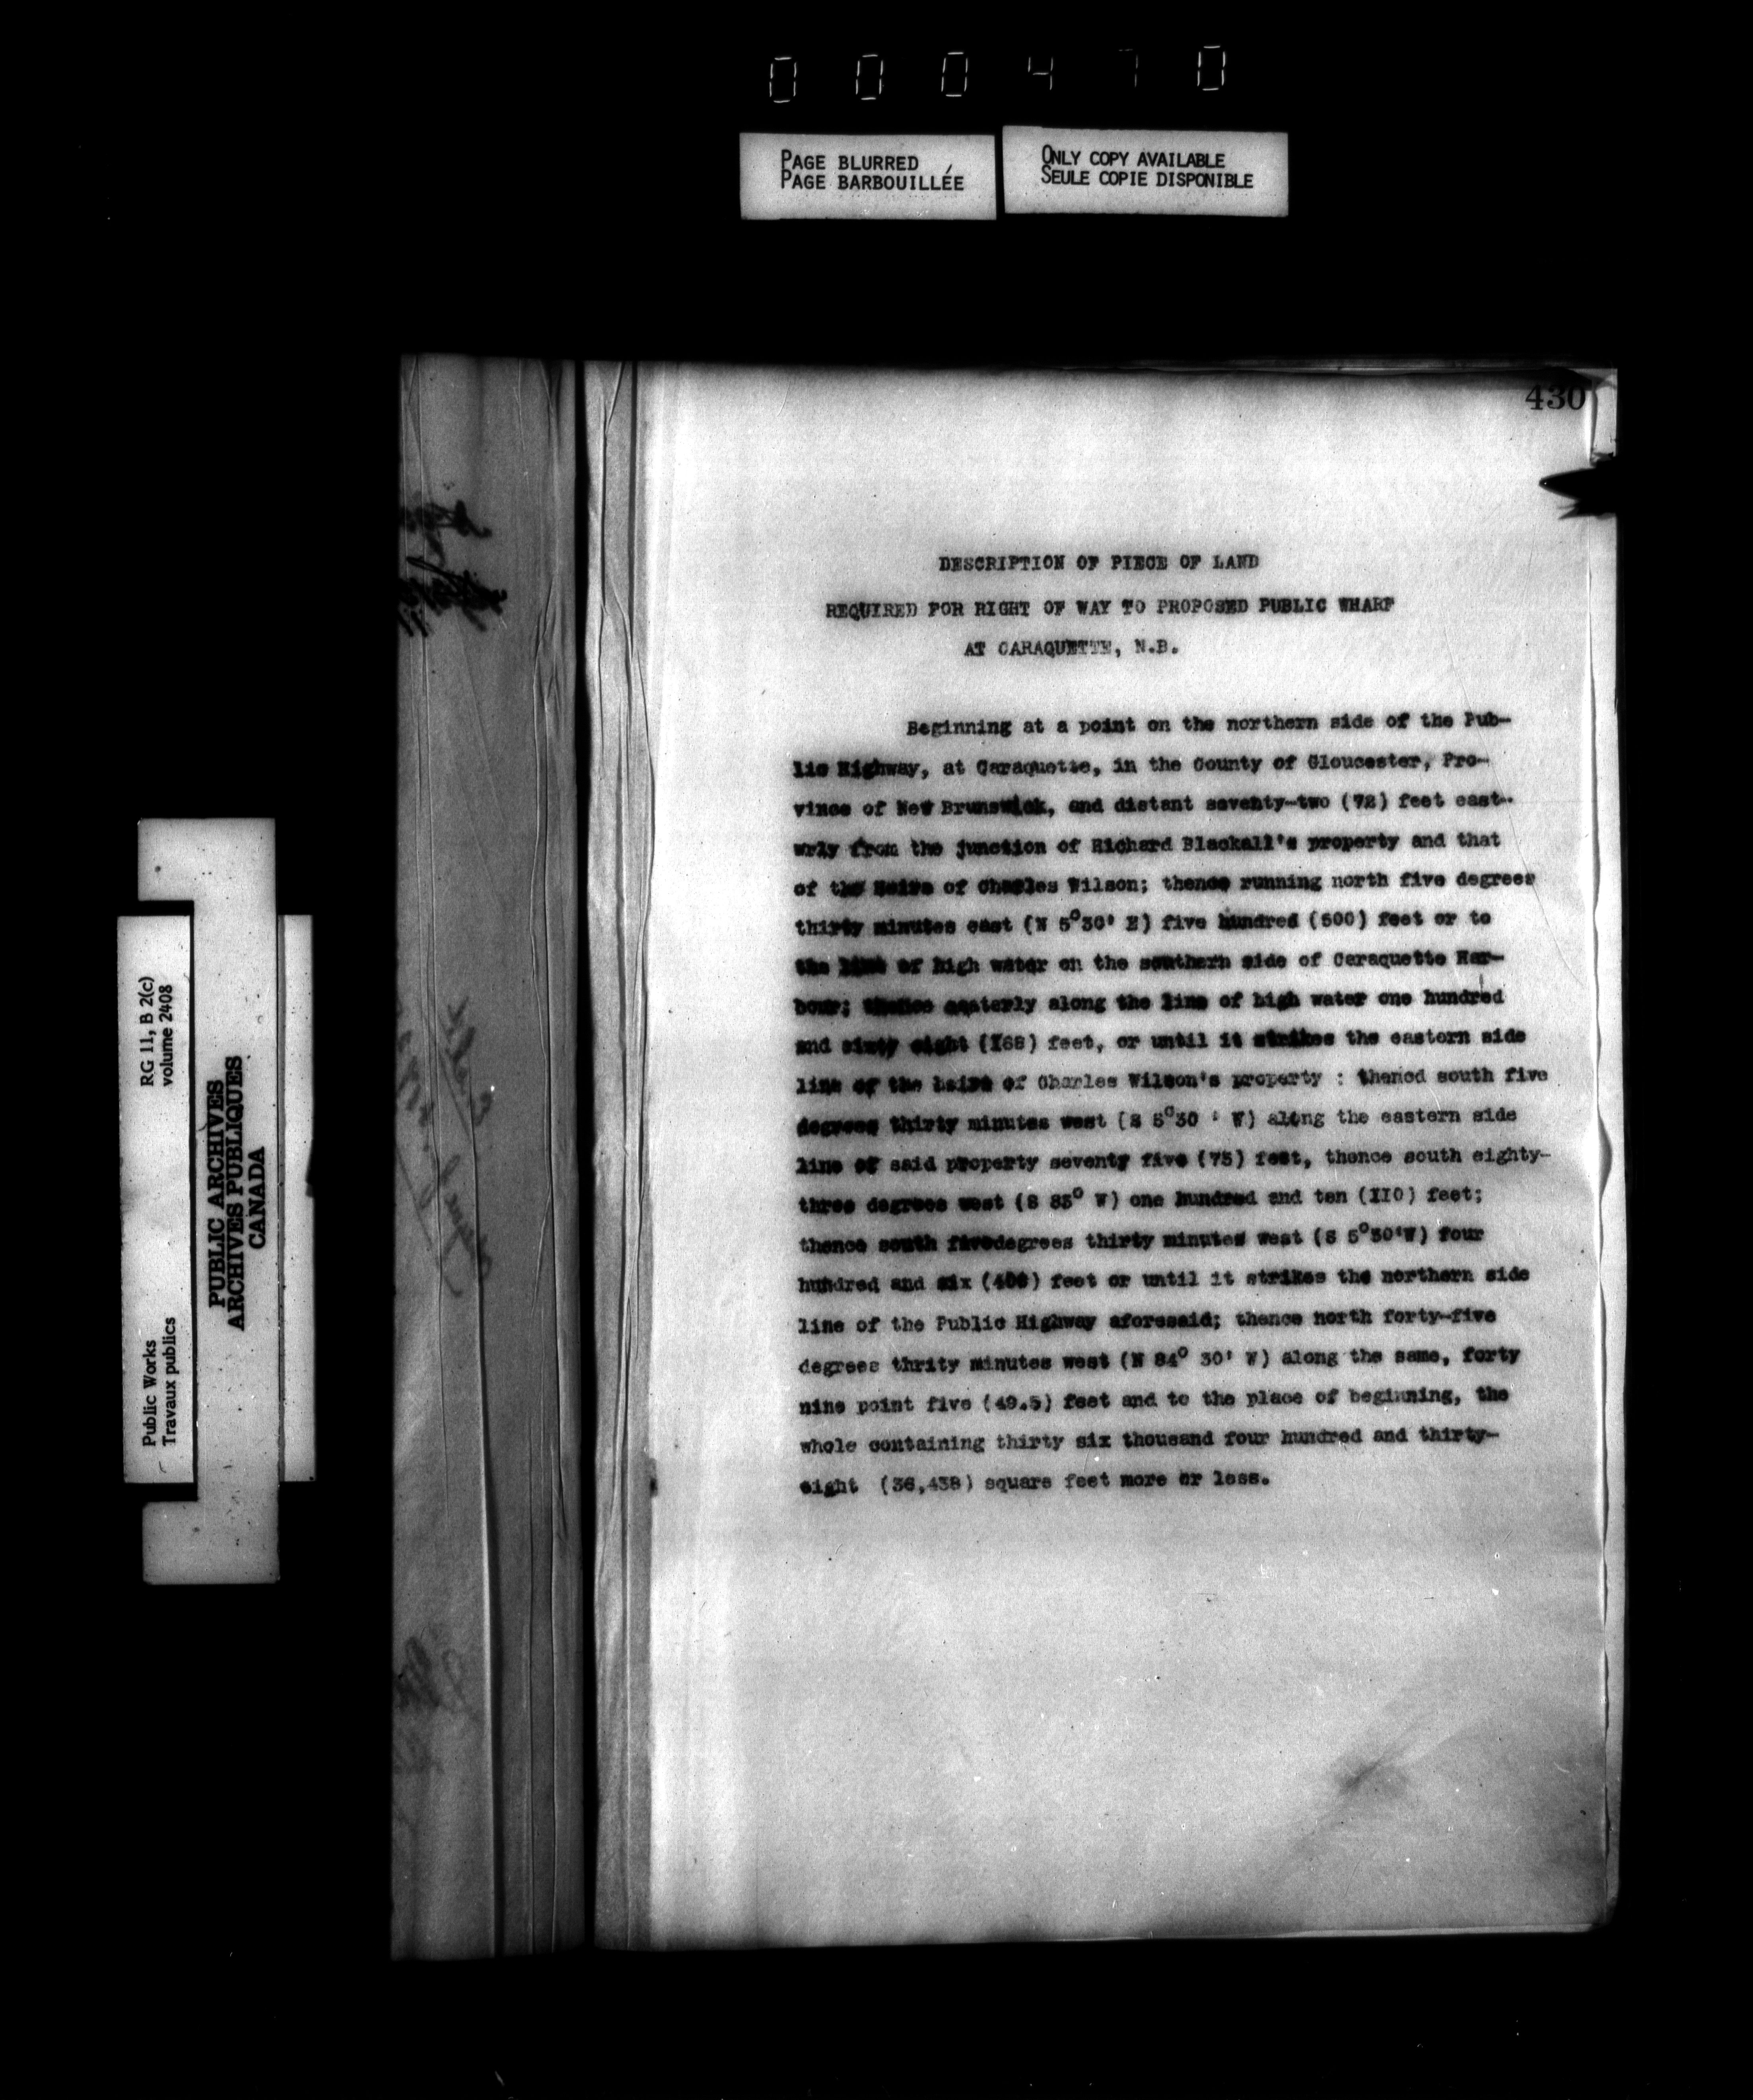 000470
PAGE BLURRED
PAGE BARBOUILLÉE
ONLY COPY AVAILABLE
SEULE COPIE DISPONIBLE
430
DESCRIPTION OF PIECE OF LAND
REQUIRED FOR RIGHT OF WAY TO PROPOSED PUBLIC WHARF
AT CARAQUETTE, N.B.
Beginning at a point on the northern side of the Pub-
lic Highway, at Caraquette, in the County of Gloucester, Pro-
vince of New Brunswick, and distant seventy-two (72) feet east-
wrly from the junction of Richard Blackall's property and that
of the Heirs of Charles Wilson; thence running north five degrees
thirty minutes east (N 5°30' E) five hundred (500) feet or to
the line of high water on the southern side of Caraquette Har-
bour; thence easterly along the line of high water one hundred
and sixty eight (I68) feet, or until it strikes the eastern side
line of the heirs of Charles Wilson's property : thenod south five
degrees thirty minutes west (S 5°30 ' W) along the eastern side
line of said property seventy five (75) feet, thence south eighty-
three degrees west (S 83° W) one hundred and ten (II0) feet;
thence south fivedegrees thirty minutes west (S 5°30'W) four
hundred and six (406) feet or until it strikes the northern side
line of the Public Highway aforesaid; thence north forty-five
degrees thrity minutes west (N 84° 30' W) along the same, forty
nine point five (49.5) feet and to the place of beginning, the
whole containing thirty six thousand four hundred and thirty-
eight (36,438) square feet more or less.
RG 11, B 2(c)
volume 2408
PUBLIC ARCHIVES
ARCHIVES PUBLIQUES
CANADA
Public Works
Travaux publics